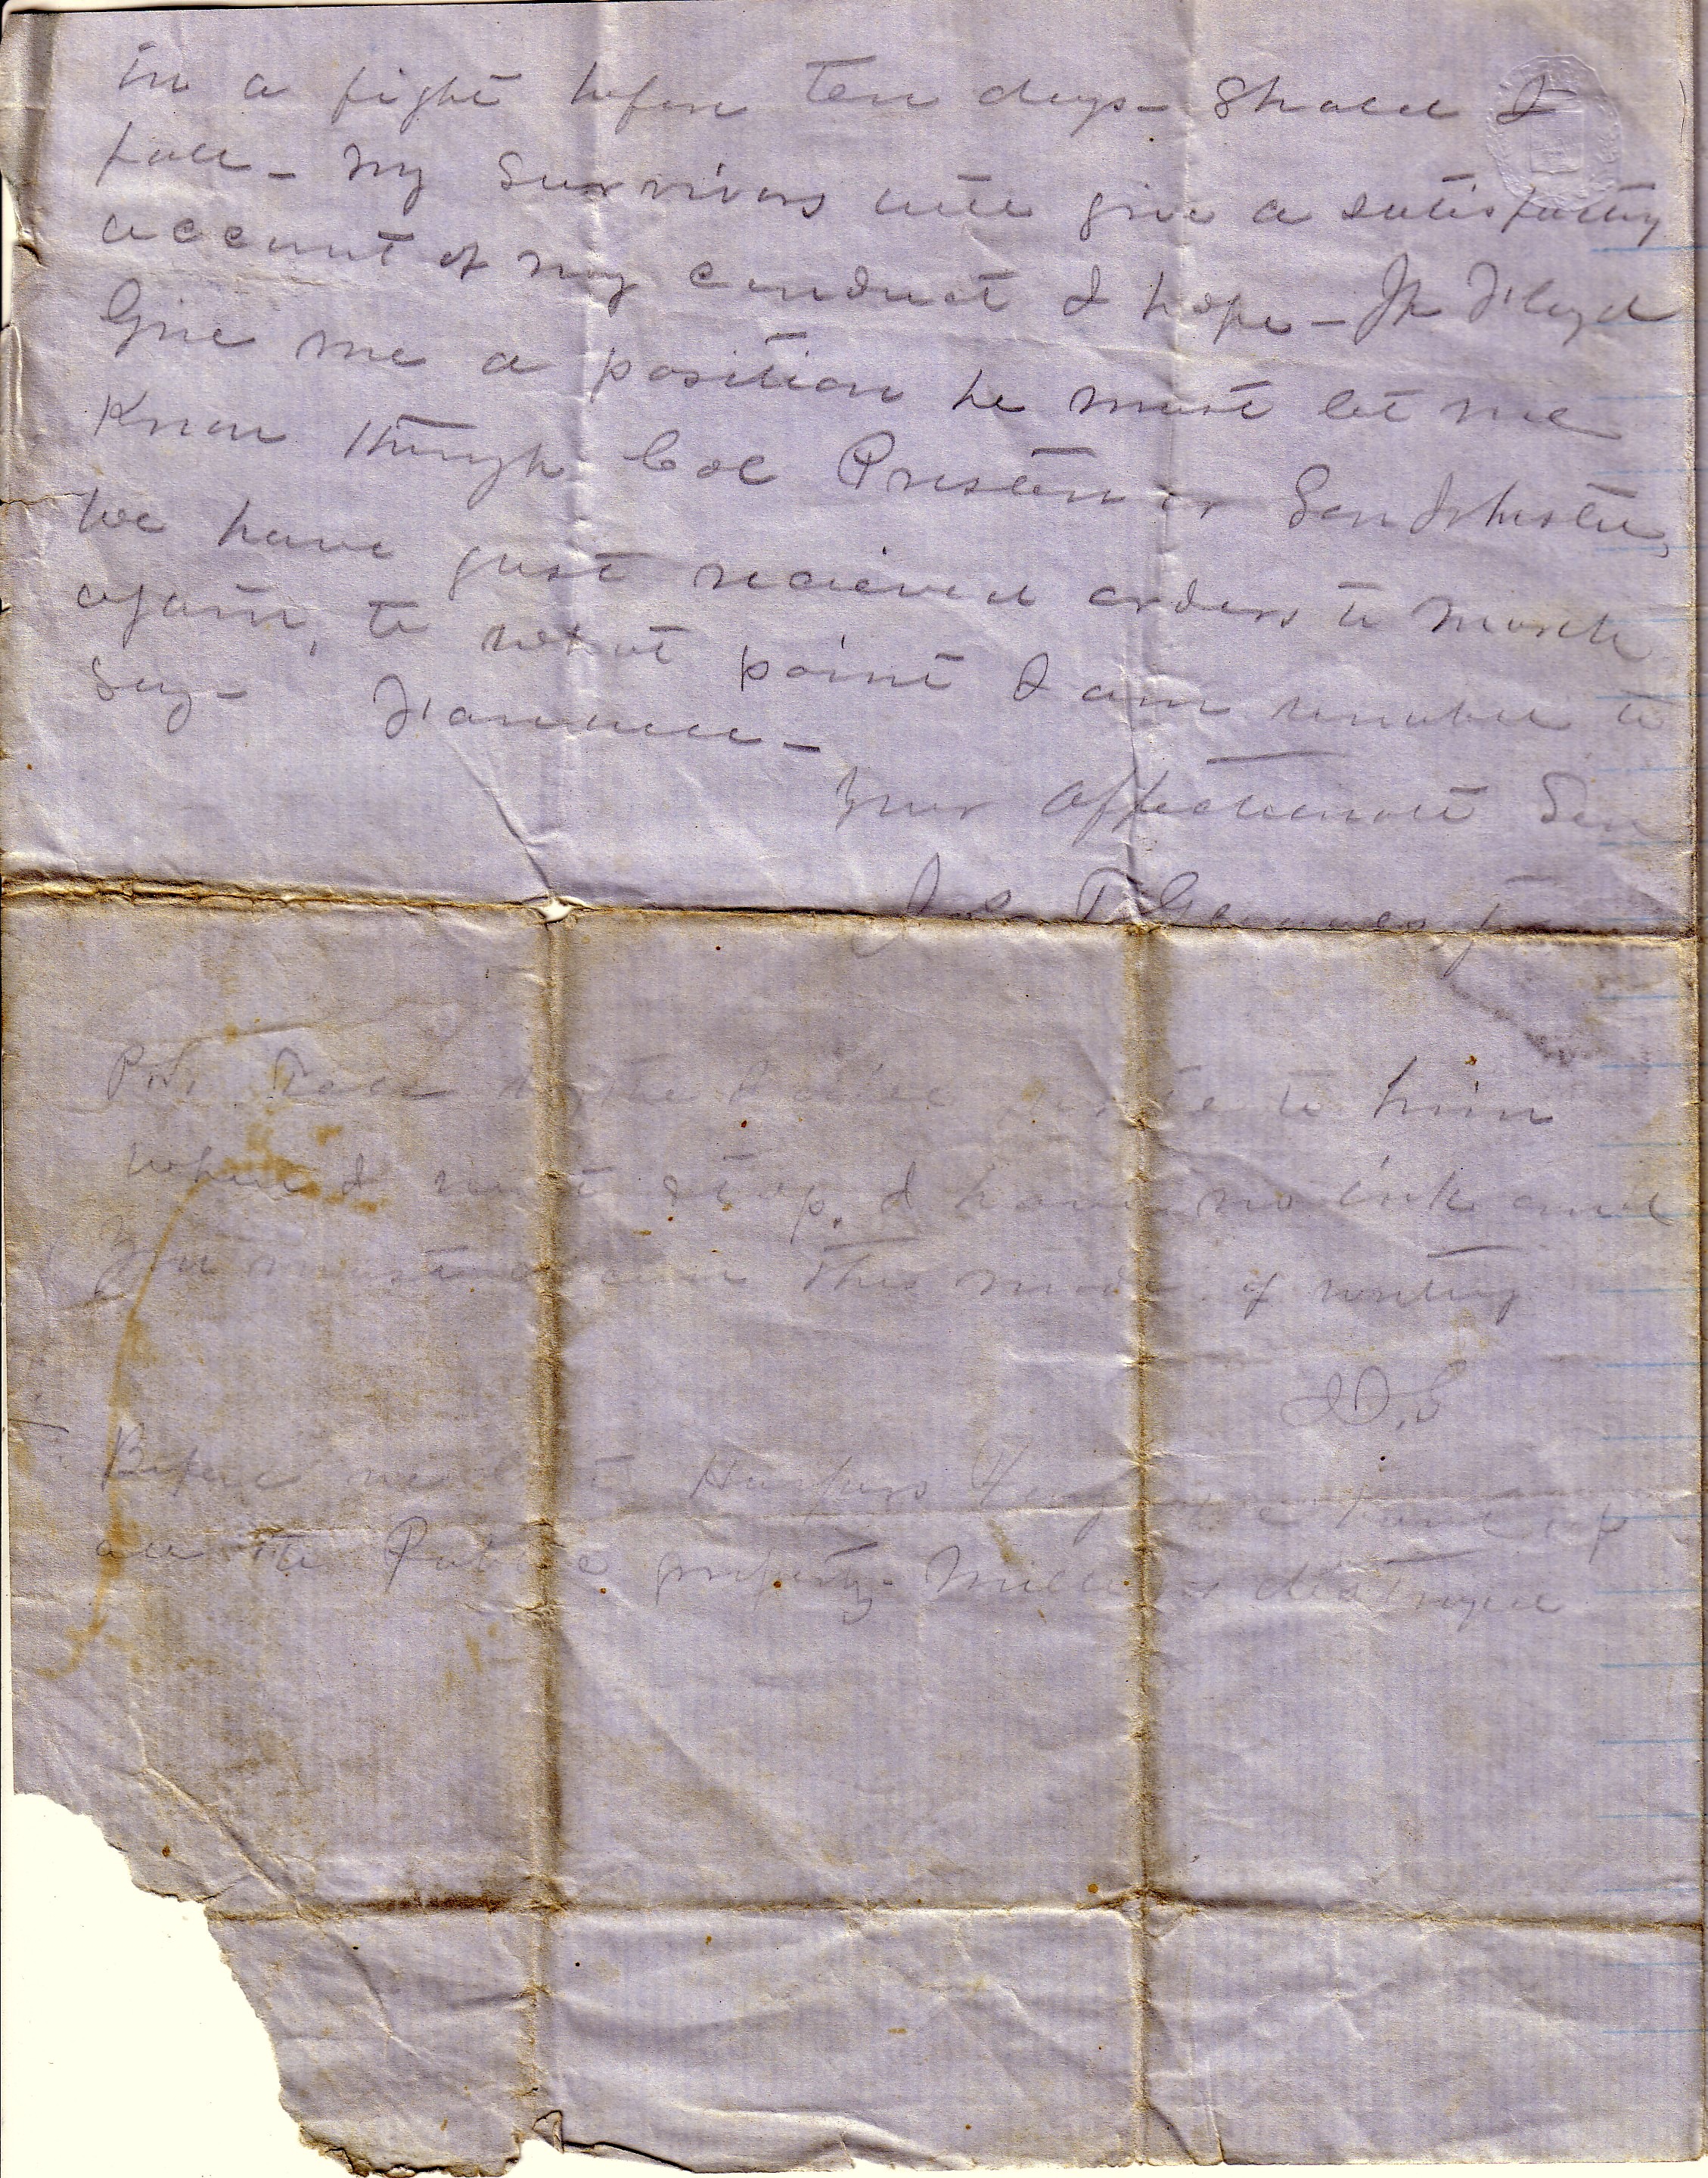 in a fight before ten days - Should I
fall - my survivors will give a satisfactory
account of my conduct I hope - If Floyd
Give me a position he must let me
Know through Col Preston or Gen Johnston,
We have just recieved orders to march
again, to what point I am unable to
say - Farewell -
Your affectionate Son
P.S. Tell write to him
when I next stop. I have no ink and
you must this mode of writing
Before we Harpers
all the Public property - destroyed